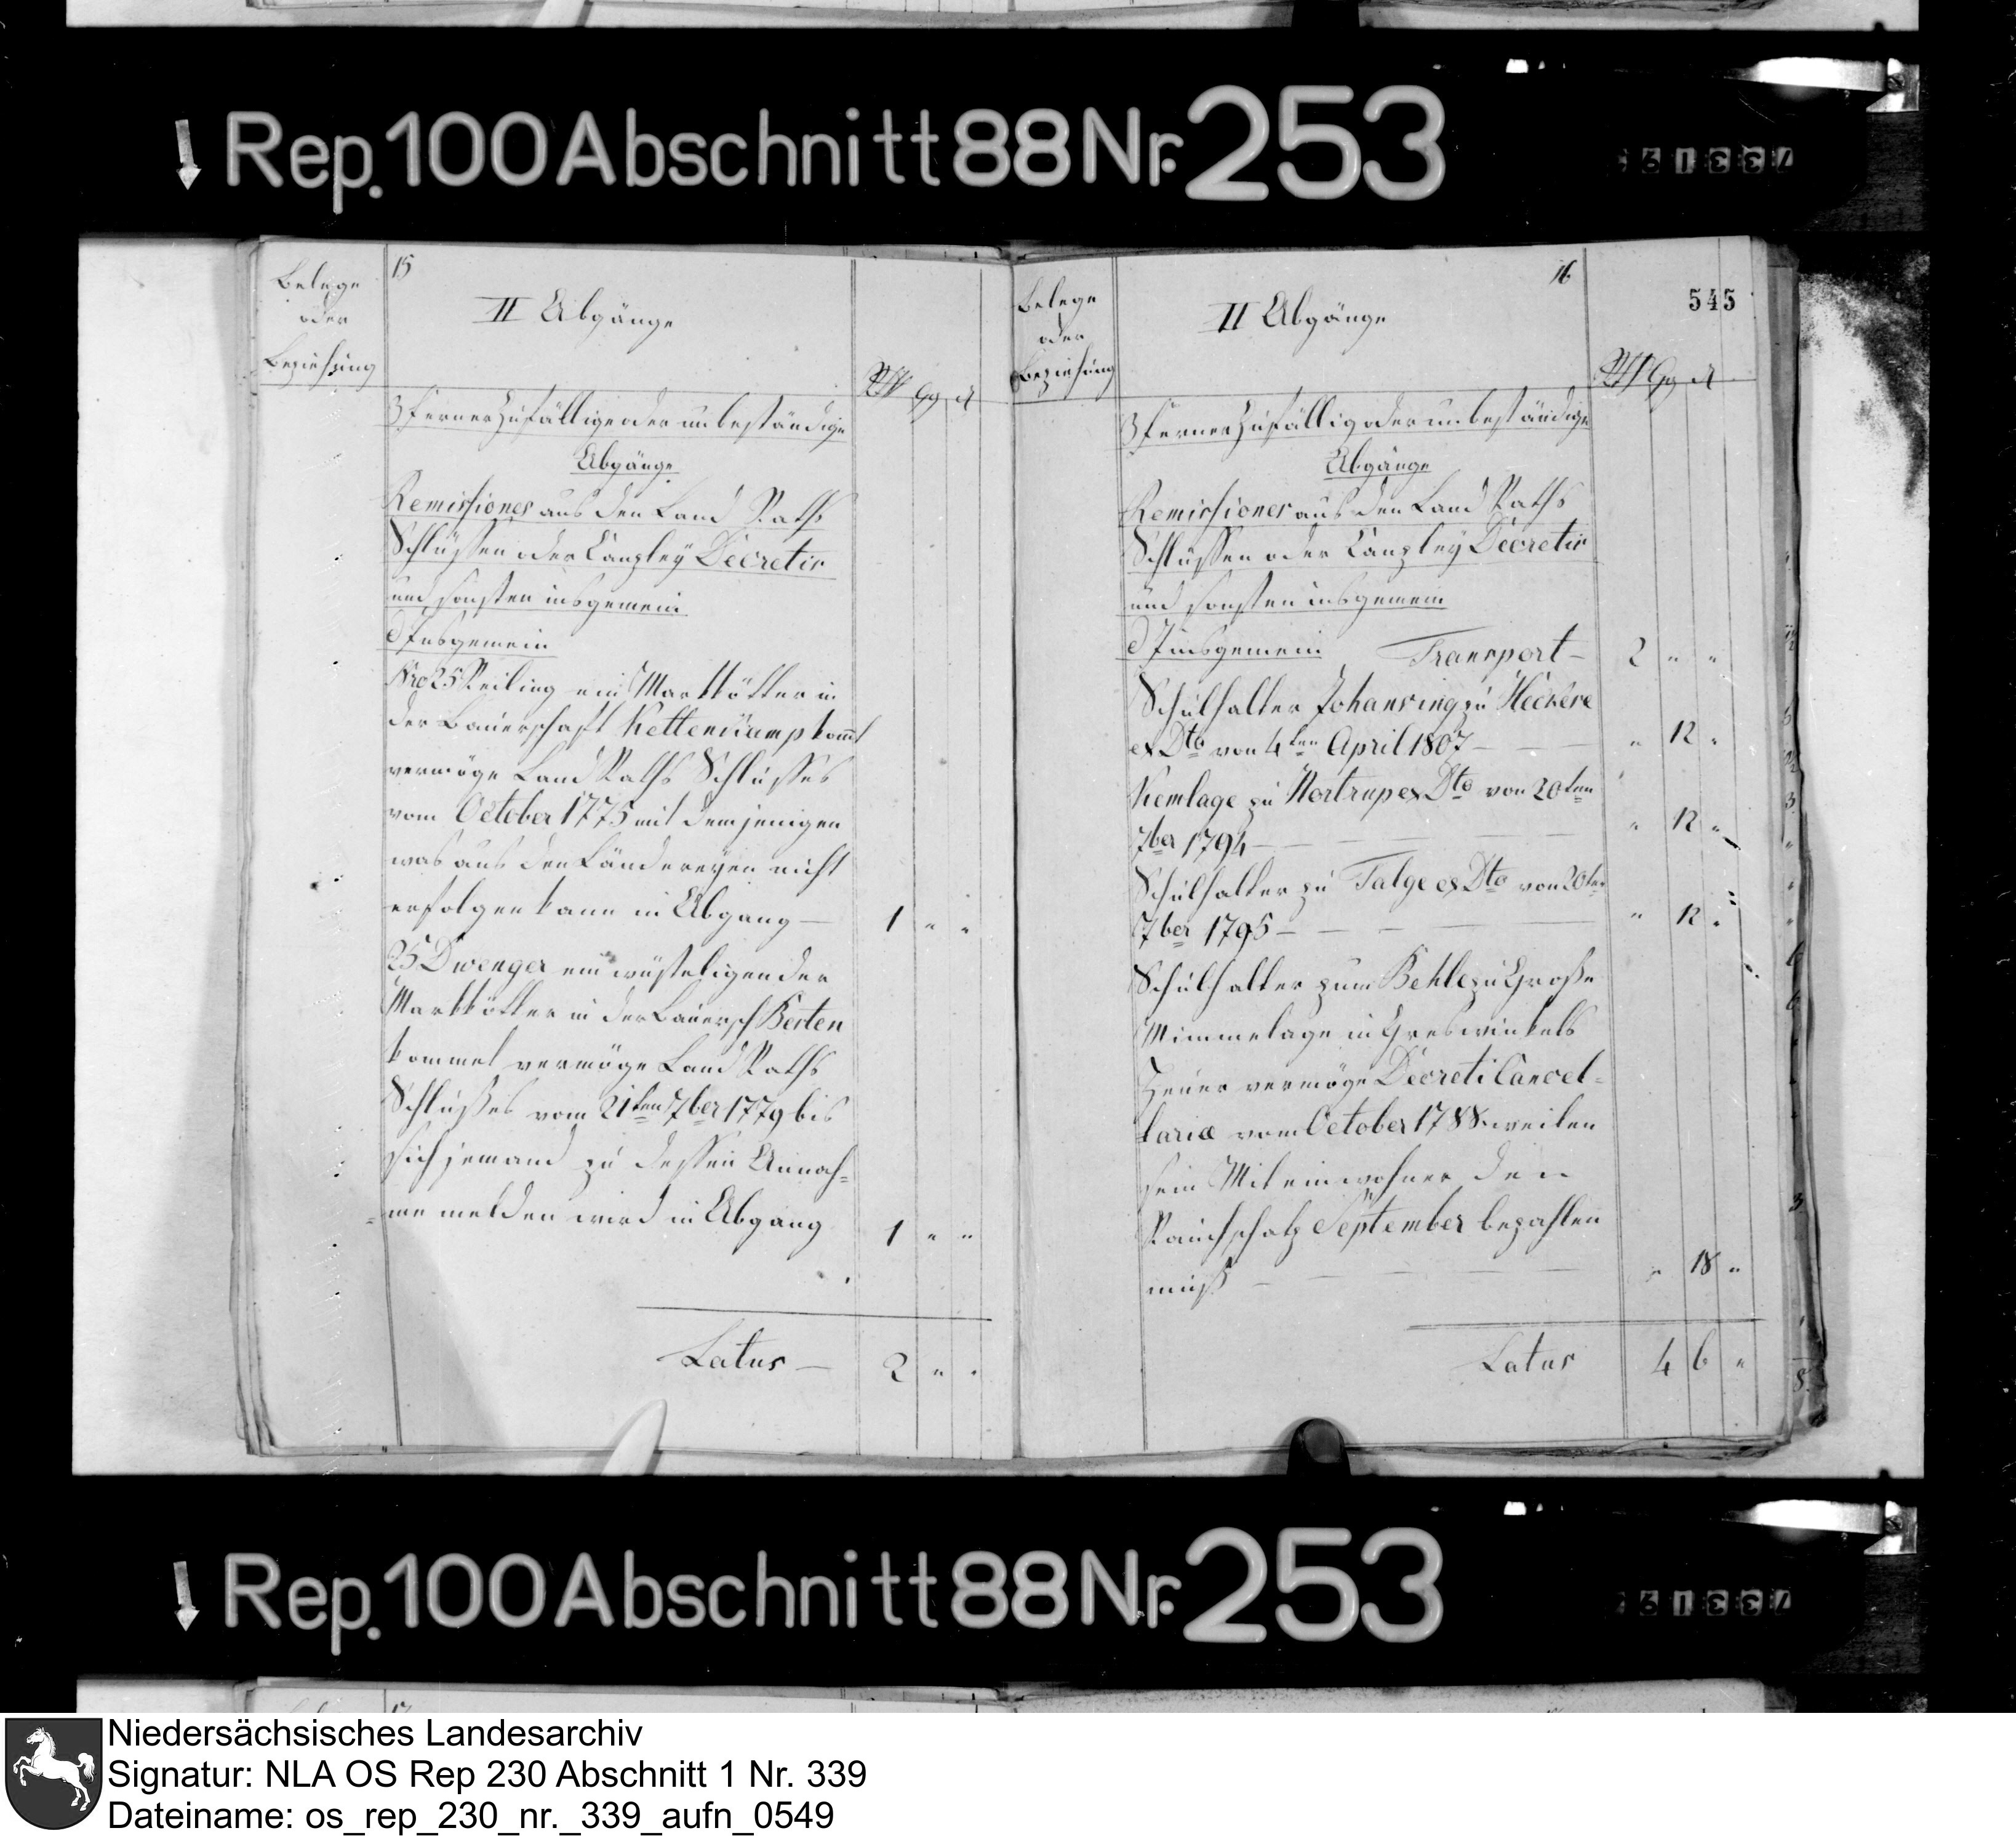 Rep. 100 Abschnitt 88 Nr. 253
15
Belege
oder
Beziehung
II Abgänge
Rthl Gg d
3 ferner Zufällige oder unbeständige
Abgänge
Remissiones aus den Land Raths
Schlüssen oder Canzley Decretis
und sonsten insgemein
d Insgemein
Nro 25 Reiling ein Markkötter in
der Bauerschaft Kettenkamp komt
vermöge Land Raths Schlusses
vom October 1775 mit demjenigen
was aus den Ländereyen nicht
erfolgen kann in Abgang — 1 " "
25 Dwenger ein wüsteligender
Markkötter in der Bauersch Besten
kommet vermöge Land Raths
Schlußes vom 21ten 7ber 1779 bis
sich jemand zu dessen Annah=
=me melden wird in Abgang 1 " "
Latus — 2 " "
16
545
Belege
oder
Beziehung
II Abgänge
Rthl Gg d
3 ferner Zufällig oder unbeständige
Abgänge
Remissiones aus den Land Raths
Schlüssen oder Canzley Decretis
und sonsten insgemein
d Insgemein Transport — 2 " "
Schulhalter Johansring zu Heckere
ex Dto von 4ten April 1807 — " 12 "
Kemlage zu Nortrup ex Dto von 20ten
7ber 1794 — " 12 "
Schulhalter zu Talge ex Dto von 20ten
7ber 1795 — " 12 "
Schulhalter zum Behle zu Große
Mimmelage in Greswinkels
Heuer vermöge Decreti Cancel=
lariæ vom October 1788 weilen
sein Miteinwohner den
Rauchschatz September bezahlen
muß — " 18 "
Latus 4 6 "
Rep. 100 Abschnitt 88 Nr. 253
Niedersächsisches Landesarchiv
Signatur: NLA OS Rep 230 Abschnitt 1 Nr. 339
Dateiname: os_rep_230_nr._339_aufn_0549